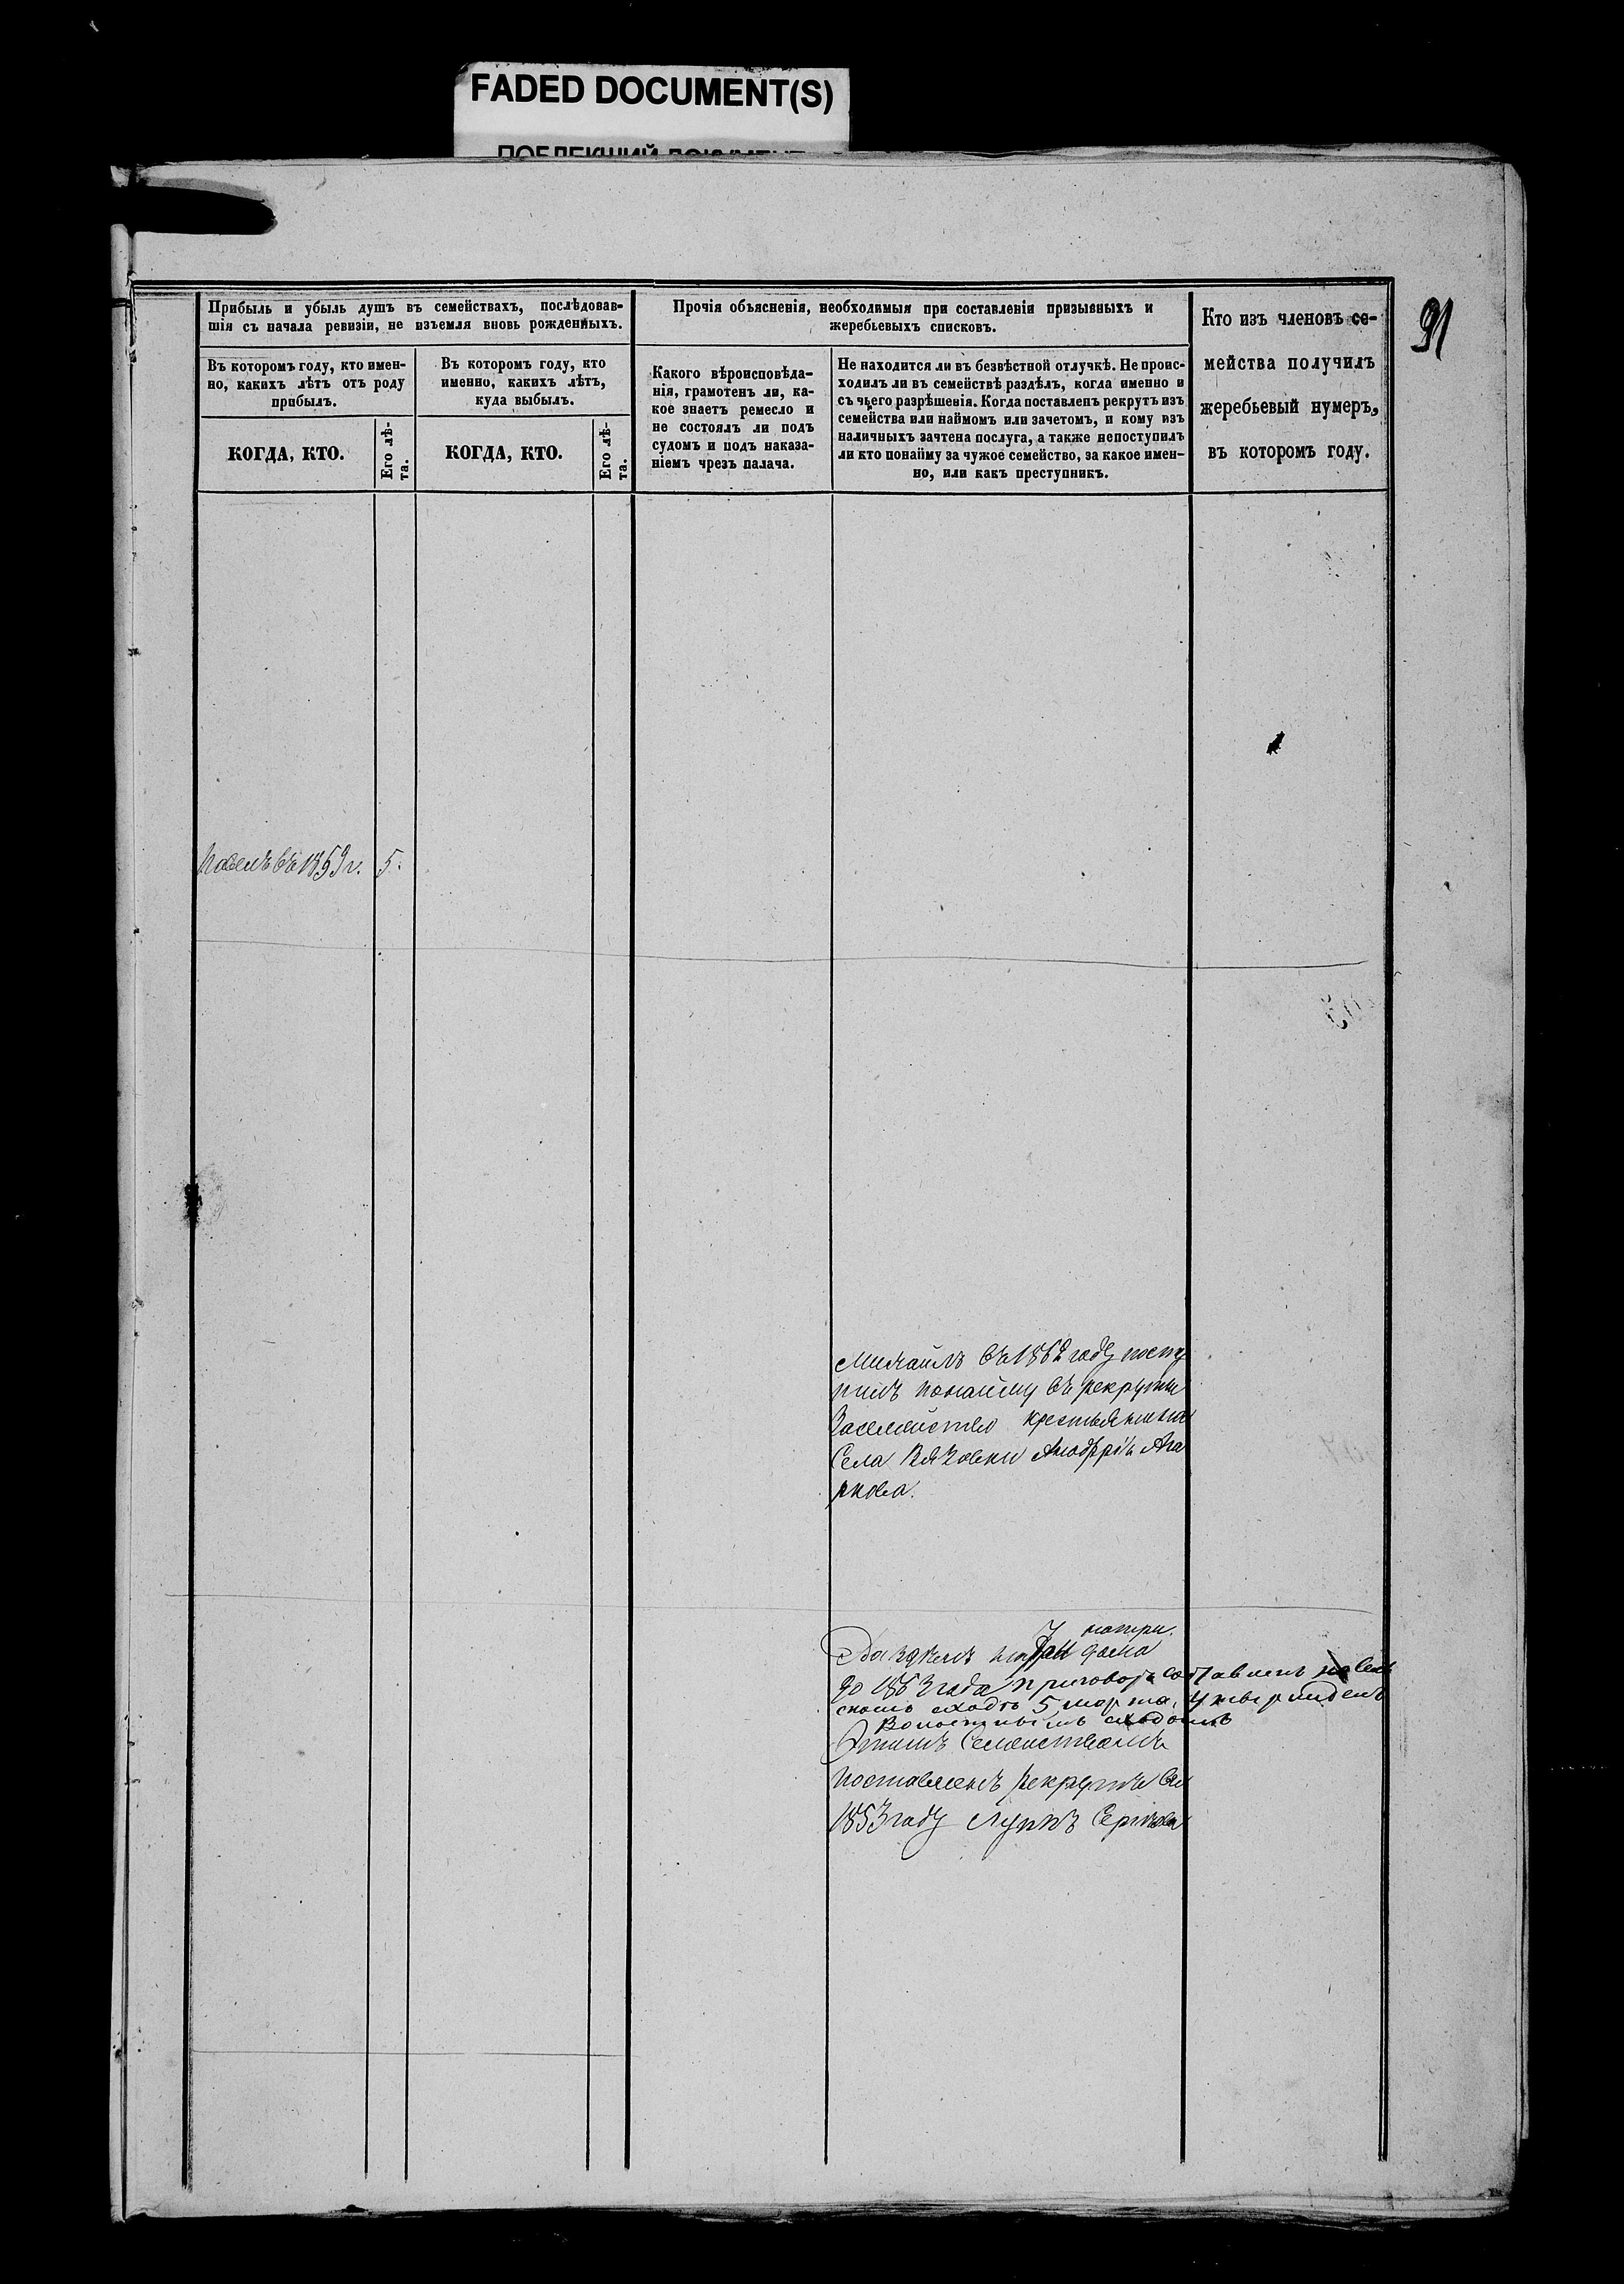 FADED DOCUMENT(S)
91
Прибыль и убыль душъ въ семействахъ, послѣдовав-
шія съ начала ревизіи, не изъемля вновь рожденныхъ.
Прочія объясненія, необходимыя при составленіи призывныхъ и
жеребьевыхъ списковъ.
Кто изъ членовъ се-
мейства получилъ
жеребьевый нумеръ,
въ которомъ году.
Въ которомъ году, кто имен-
но, какихъ лѣтъ отъ роду
прибылъ.
Въ которомъ году, кто
именно, какихъ лѣтъ,
куда выбылъ.
Какого вѣроисповѣда-
нія, грамотенъ ли, ка-
кое знаетъ ремесло и
не состоялъ ли подъ
судомъ и подъ наказа-
ніемъ чрезъ палача.
Не находится ли въ безвѣстной отлучкѣ. Не проис-
ходилъ ли въ семействѣ раздѣлъ, когда именно и
съ чьего разрѣшенія. Когда поставленъ рекрутъ изъ
семейства или наймомъ или зачетомъ, и кому изъ
наличныхъ зачтена послуга, а также непоступилъ
ли кто понайму за чужое семейство, за какое имен-
но, или какъ преступникъ.
КОГДА, КТО.
Его лѣ-
та.
КОГДА, КТО.
Его лѣ-
та.
Павелъ въ 1859 г. 5.
Михаилъ въ 1862 году посту
пилъ понайму въ рекруты
Засемейство крестьянина
Села Вязовки Андрѣя Ага
ркова.
Раздѣлъ на три дома
до 1863 года приговоръ составленъ
скомъ сходѣ 5 марта, утвержденъ
Волостнымъ сходомъ
Этимъ Семействомъ
поставленъ рекрутъ въ
1853 году Лупъ